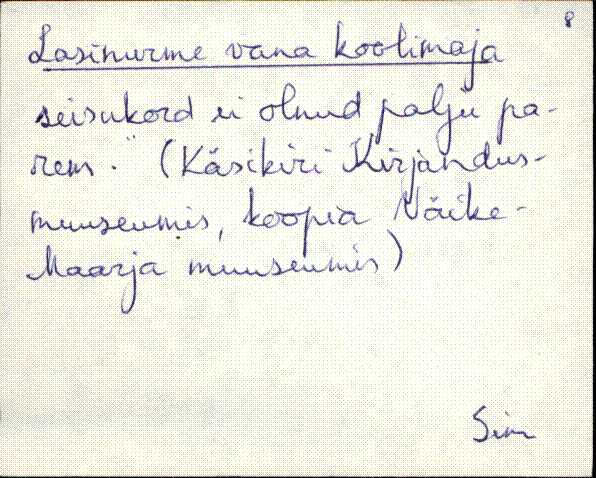 8
Lasinurme vana koolimaja
seisukord ei olnud palju pa-
rem." (Käsikiri Kirjandus-
muuseumis, koopia Väike-
Maarja muuseumis)
Sim